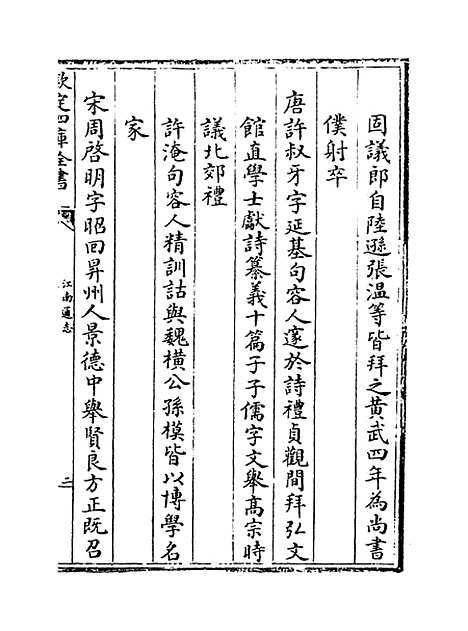 固議郎自陸遜張温等皆拜之黄武四年為尚書
僕射卒
唐許叔牙字延基句容人邃於詩禮貞觀間拜弘文
館直學士獻詩纂義十篇子子儒字文舉髙宗時
議北郊禮
許淹句容人精訓詁與魏横公孫模皆以博學名
家
宋周啓明字昭回昇州人景德中舉賢良方正既召
欽定四庫全書
江南通志
二